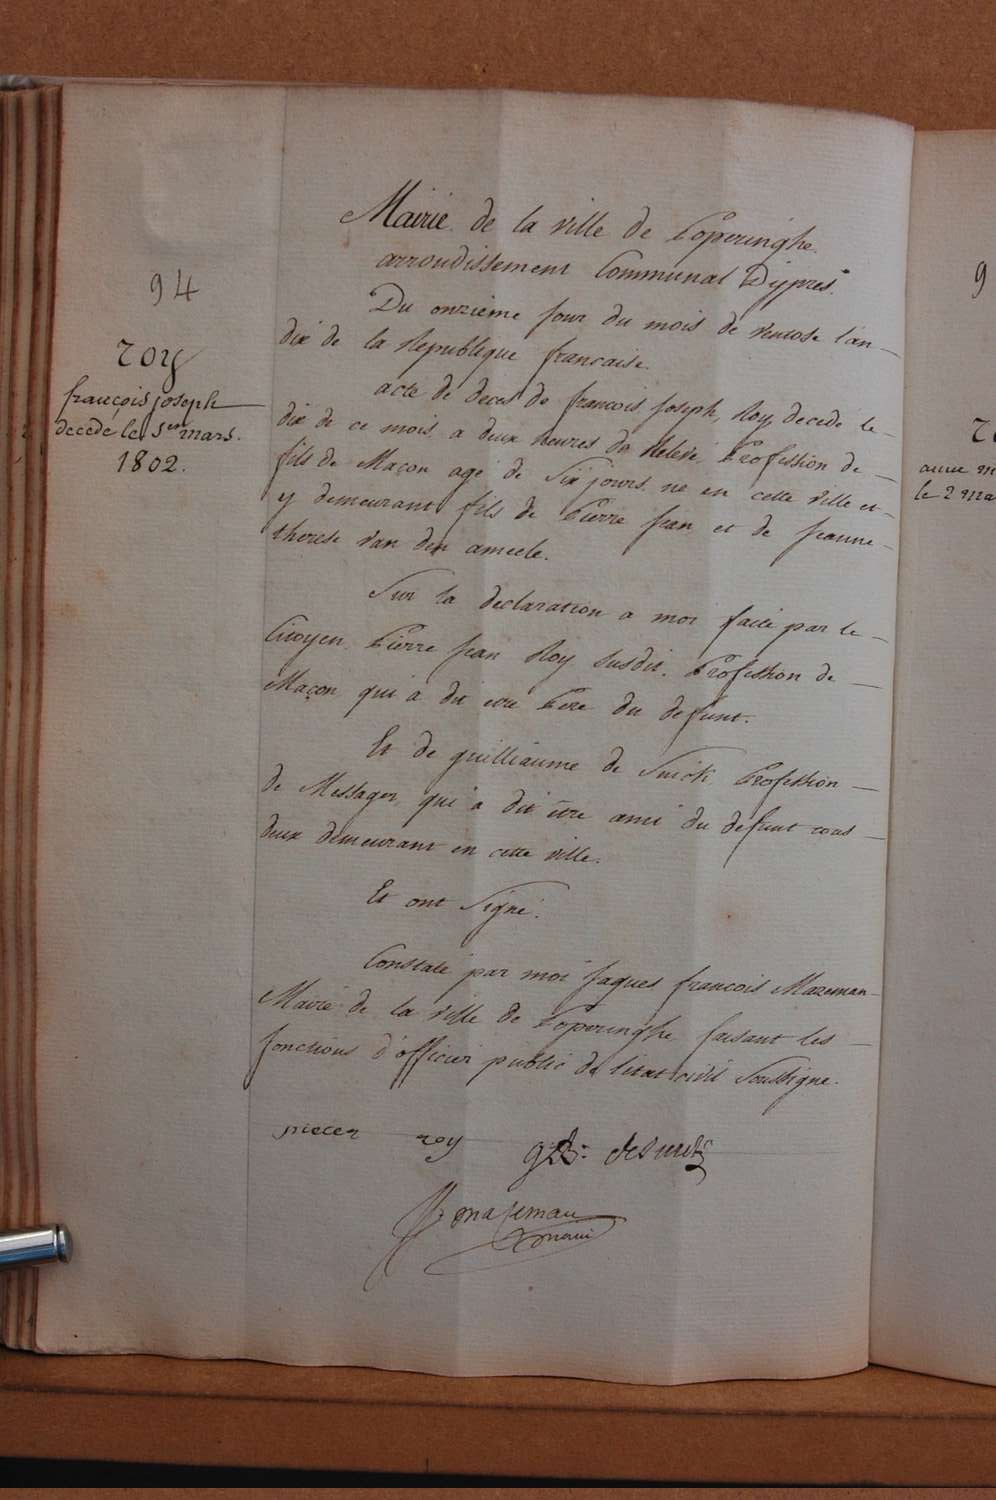 94
roy
françois joseph
decedé le 1.er mars.
1802.
Mairie de la ville de Poperinghe.
arrondissement Communal D'ypres.
Du onzième jour du mois de ventose l'an
dix de la Republique francaise.
acte de deces de francois Joseph Roy decedé le
dix de ce mois, a deux heures de Relevé, Profession de
fils de Maçon agé de Six jours né en cette ville et
y demeurant fils de Pierre Jean et de Jeanne
therese van den ameele.
Sur la declaration a moi faite par le
Citoyen Pierre Jean Roy susdit, Profession de
Maçon qui a dit etre Pere du defunt.
Et de guilliaume de Smidt Profession
de Messager, qui a dit être ami du defunt tous
deux demeurant en cette ville.
Et ont Signé.
Constaté par moi Jaques francois Mazeman
Maire de la ville de Poperinghe faisant les
fonctions d'officier public de l'état civil Soussigné.
pieeter roy
desmidt
mazeman
maire
9
le 2 ma